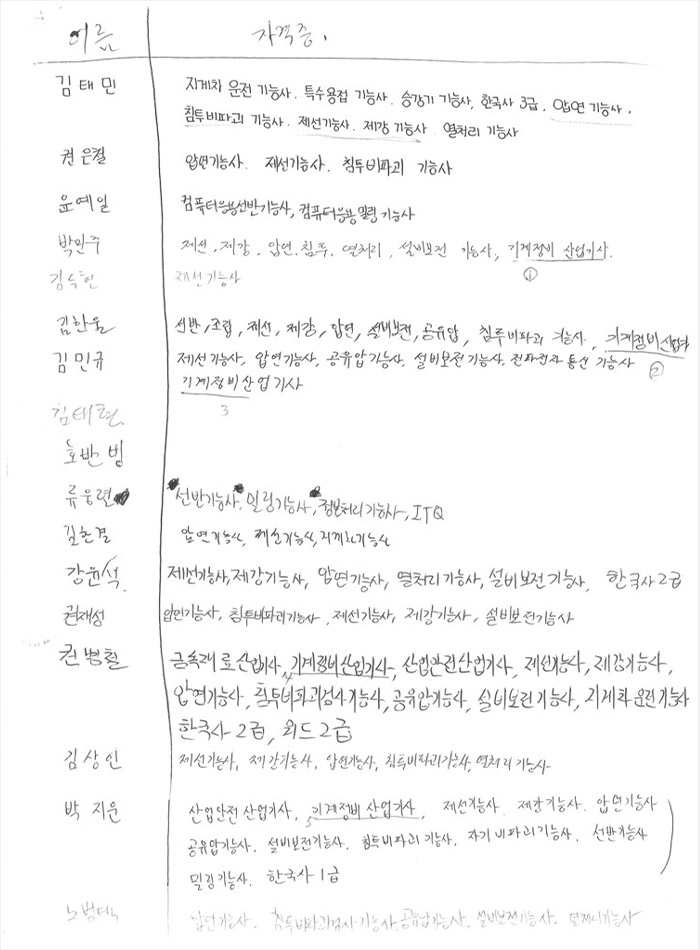 이름 자격증.
김태민 지게차 운전 기능사. 특수용접 기능사. 승강기 기능사, 한국사 3급, 압연 기능사.
침투비파괴 기능사. 제선기능사. 제강 기능사. 열처리 기능사
권은철 압연기능사. 제선기능사. 침투비파괴 기능사
윤예일 컴퓨터응용선반기능사, 컴퓨터응용밀링기능사
박민주 제선, 제강, 압연. 침투. 열처리, 설비보전 기능사, 기계정비 산업기사.
①
제선기능사
김한울 선반, 조립, 제선, 제강, 압연, 설비보전, 공유압, 침투비파괴 기능사, 기계정비산업기사
②
김민규 제선기능사, 압연기능사, 공유압기능사, 설비보전기능사, 전파전자통신 기능사
기계정비산업기사
3
호반빙
류웅련 선반기능사, 밀링기능사, 정보처리기능사, ITQ
압연기능사, 제선기능사, 지게차기능사
강윤석. 제선기능사, 제강기능사, 압연기능사, 열처리기능사, 설비보전기능사, 한국사 2급
권재성 압연기능사, 침투비파괴기능사, 제선기능사, 제강기능사, 설비보전기능사
권병철 금속재료산업기사, 기계정비산업기사, 산업안전산업기사, 제선기능사, 제강기능사,
압연기능사, 침투비파괴검사기능사, 공유압기능사, 설비보전기능사, 지게차운전기능사
한국사 2급, 워드 2급
김상인 제선기능사, 제강기능사, 압연기능사, 침투비파괴기능사, 열처리기능사
박지운 산업안전 산업기사, 기계정비 산업기사, 제선기능사. 제강기능사. 압연기능사
공유압기능사. 설비보전기능사. 침투비파괴기능사. 자기비파괴기능사. 선반기능사
밀링기능사. 한국사 1급
압연기능사. 침투비파괴검사기능사. 공유압기능사. 설비보전기능사. 열처리기능사